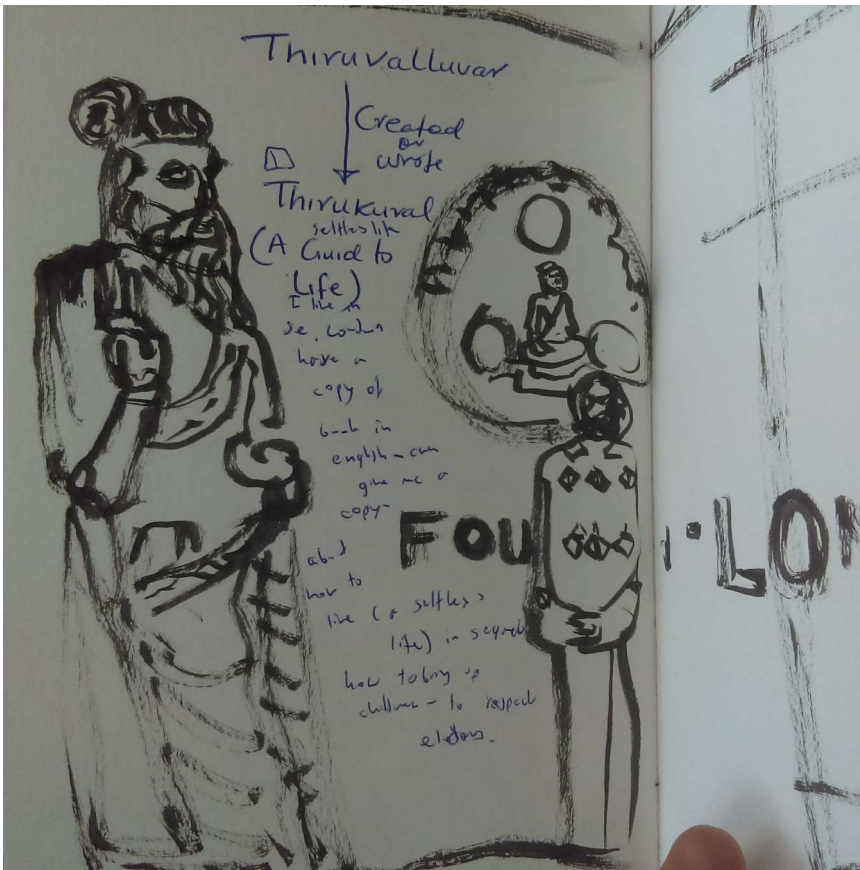 Thiruvalluvar
Created
or
wrote
Thirukural
(A Guid to
Life)
I live in
se, London
have a
copy of
book in
english - can
give me a
copy -
about
how to
live (a selfless
life) in
how to bring up
children - to respect
elders.
FOU
LON